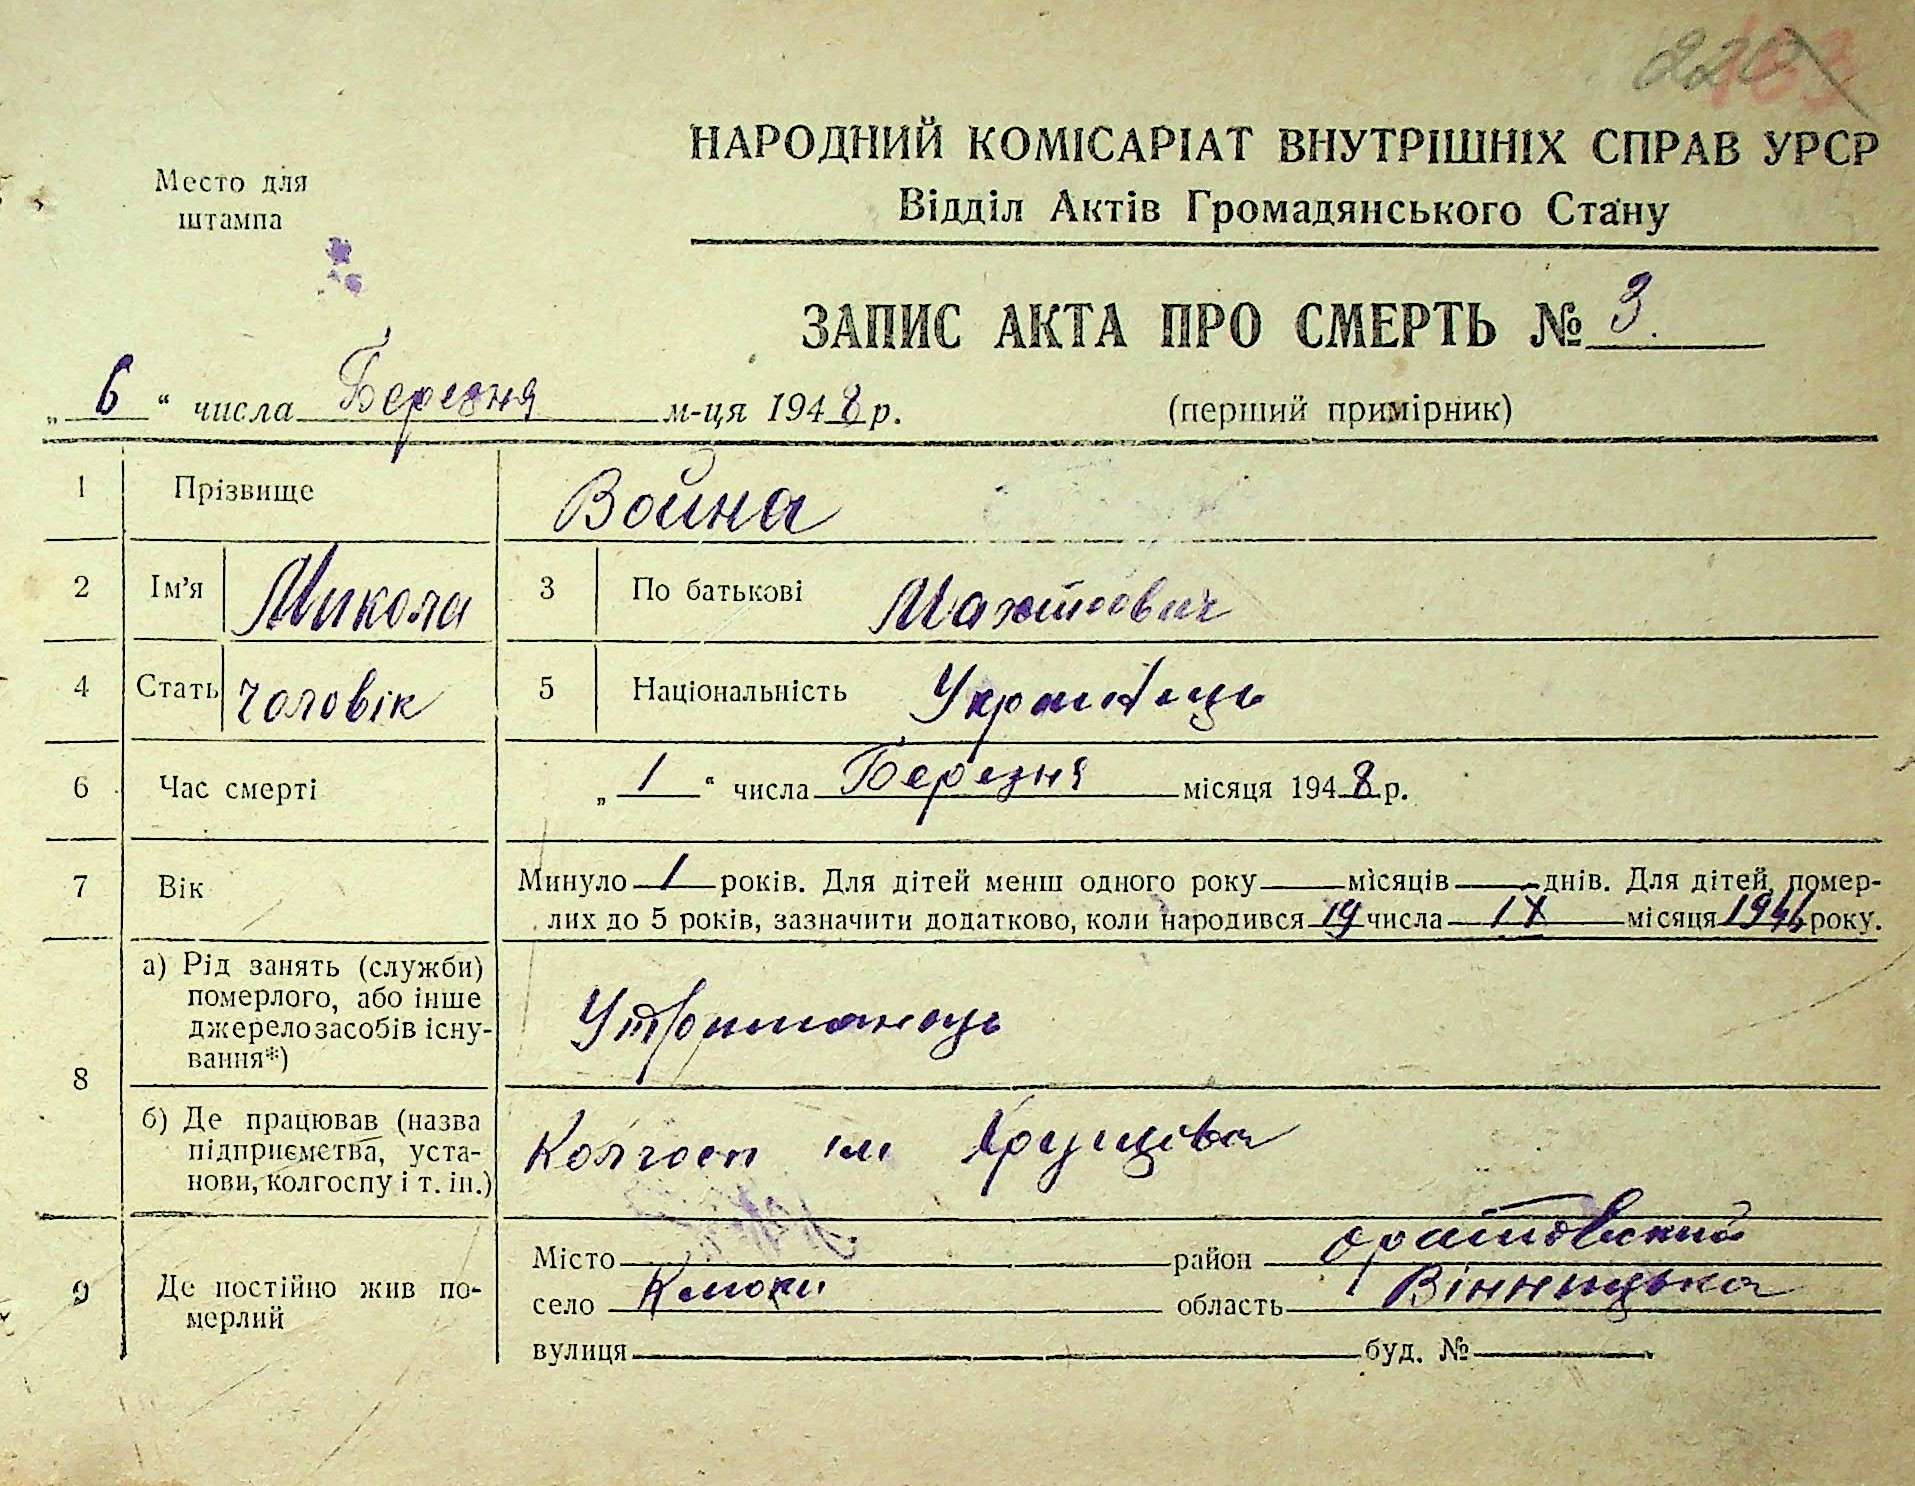 220
НАРОДНИЙ КОМІСАРІАТ ВНУТРІШНІХ СПРАВ УРСР
Відділ Актів Громадянського Стану
Место для
штампа
ЗАПИС АКТА ПРО СМЕРТЬ № 3.
„ 6 “ числа Березня м-ця 1948 р.
(перший примірник)
1 Прізвище Война
2 Ім’я Микола 3 По батькові
4 Стать чоловік 5 Національність Українець
6 Час смерті „ 1 “ числа Березня місяця 1948 р.
7 Вік Минуло 1 років. Для дітей менш одного року місяців днів. Для дітей, помер-
лих до 5 років, зазначити додатково, коли народився 19 числа IX місяця 1946 року.
8 а) Рід занять (служби)
померлого, або інше
джерело засобів існу-
вання*)
Утриманець
б) Де працював (назва
підприємства, уста-
нови, колгоспу і т. ін.)
Колгосп ім Хрущова
9 Де постійно жив по-
мерлий
Місто район Оратовский
село Клюки область Вінницька
вулиця буд. №